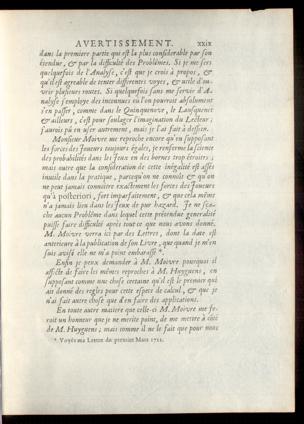 AVERTISSEMENT. xxix
dans la premiere partie qui est la plus considerable par son
étendue, & par la difficulté des Problêmes. Si je me sers
quelquefois de l'Analyse, c'est que je crois à propos, &
qu'il est agreable de tenter differentes voyes, & utile d'ou-
vrir plusieurs routes. Si quelquefois sans me servir d'A-
nalyse j'employe des inconnues où l'on pourroit absolument
s'en passer, comme dans le Quinquenove, le Lansquenet
& ailleurs, c'est pour soulager l'imagination du Lecteur;
j'aurois pû en user autrement, mais je l'ai fait à dessein.
Monsieur Moivre me reproche encore qu'en supposant
les forces des Joueurs toujours égales, je renferme la science
des probabilités dans les Jeux en des bornes trop étroites;
mais outre que la consideration de cette inégalité est assés
inutile dans la pratique, parcequ'on ne connoît & qu'on
ne peut jamais connoître exactement les forces des Joueurs
qu'à posteriori, fort imparfaitement, & que cela même
n'a jamais lieu dans les Jeux de pur hazard. Je ne sca-
che aucun Problême dans lequel cette prétendue generalité
puisse faire difficulté après tout ce que nous avons donné.
M. Moivre verra ici par des Lettres, dont la date est
anterieure à la publication de son Livre, que quand je m'en
suis avisé elle ne m'a point embarassé *.
Enfin je peux demander à M. Moivre pourquoi il
affecte de faire les mêmes reproches à M. Huyghens, en
supposant comme une chose certaine qu'il est le premier qui
ait donné des regles pour cette espece de calcul, & que je
n'ai fait autre chose que d'en faire des applications.
En toute autre matiere que celle-ci M. Moivre me fe-
roit un honneur que je ne merite point, de me mettre à côté
de M. Huyghens; mais comme il ne le fait que pour nous
* Voyés ma Lettre du premier Mars 1712.